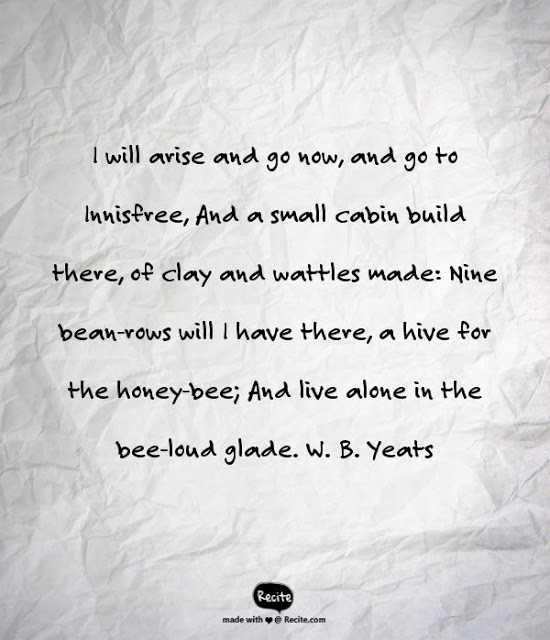 I will arise and go now, and go to
Innisfree, And a small cabin build
there, of clay and wattles made: Nine
bean-rows will I have there, a hive for
the honey-bee; And live alone in the
bee-loud glade. W. B. Yeats
Recite
made with ♥ @ Recite.com